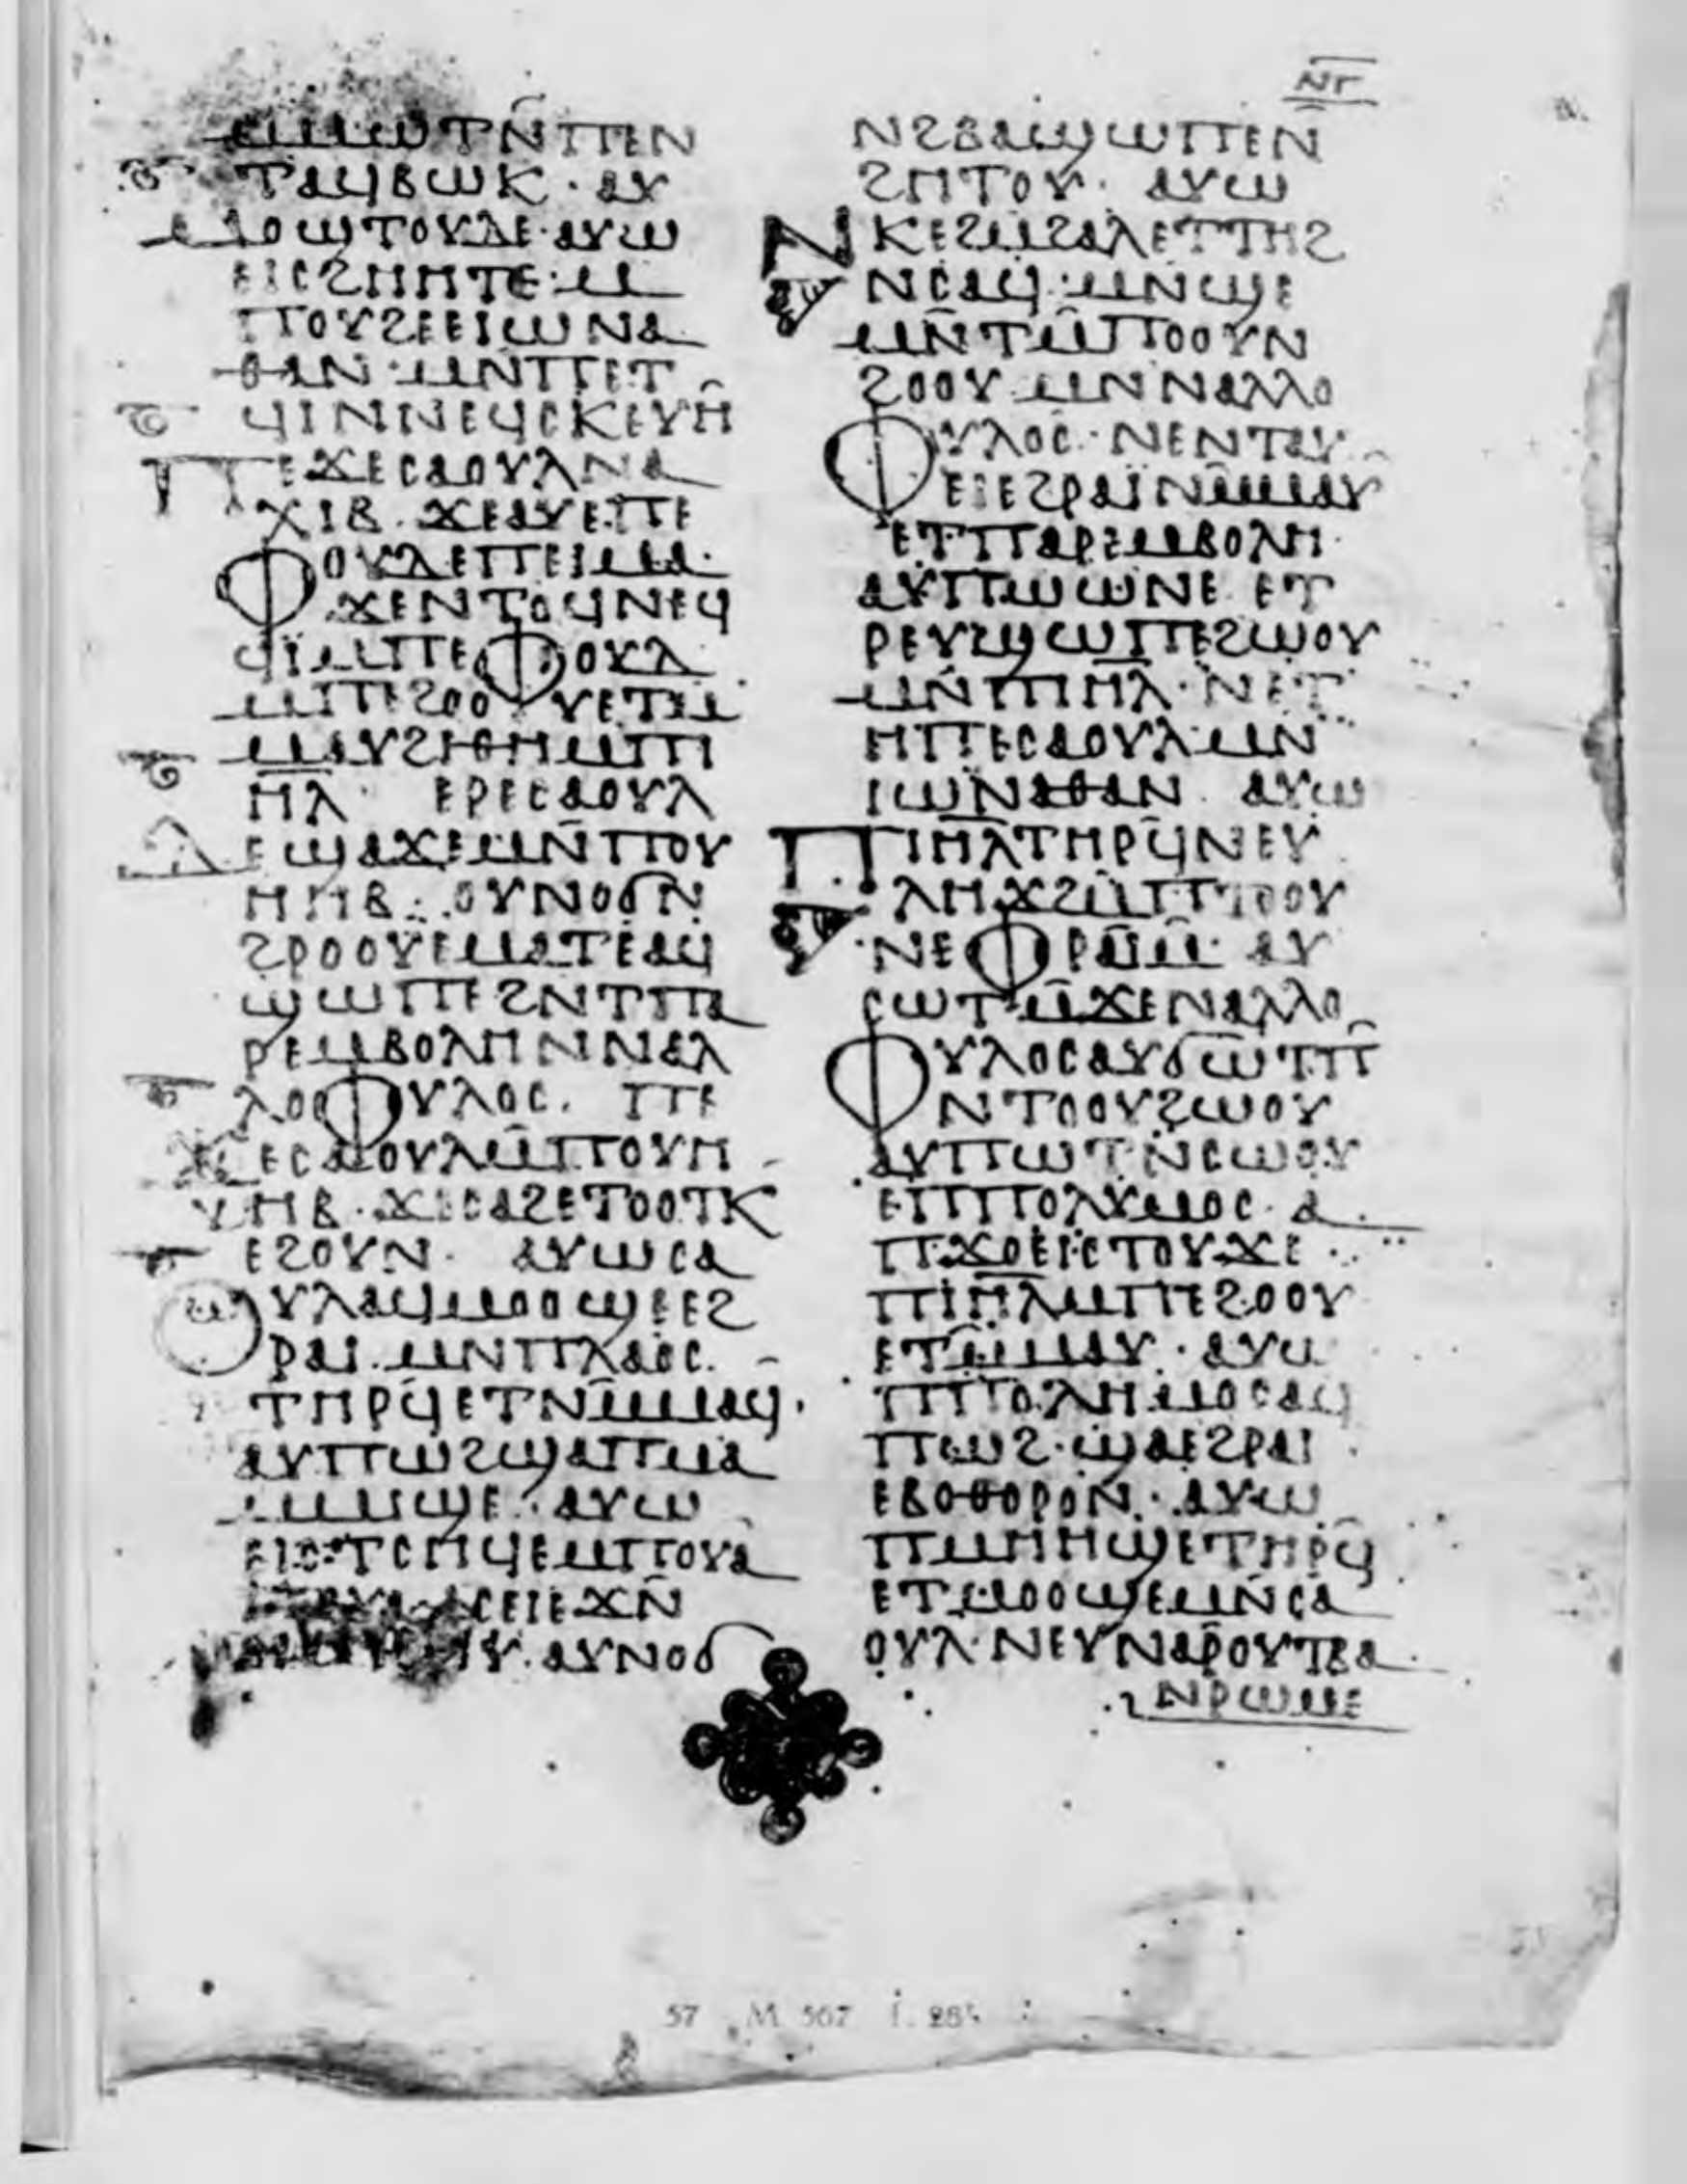 ⲛⲅ
ⲙⲙⲱⲧⲛ̄ⲡⲉⲛ
ⲧⲁϥⲃⲱⲕ· ⲁⲩ
ϭⲟϣⲧⲟⲩⲇⲉ·ⲁⲩⲱ
ⲉⲓⲥϩⲏⲏⲧⲉ·ⲙ
ⲡⲟⲩϩⲉⲉⲓⲱⲛⲁ
ⲑⲁⲛ·ⲙⲛ̄ⲡⲉⲧ
ϥⲓⲛⲛⲉϥⲥⲕⲉⲩⲏ̄
ⲡⲉϫⲉⲥⲁⲟⲩⲗⲛⲁ
ⲭⲓⲃ·ϫⲉⲁⲩⲉⲓⲡⲉ
ⲫⲟⲩⲇⲉⲡⲉⲓⲙⲁ·
ϫⲉⲛⲧⲟϥⲛⲉϥ
ϥⲓ̈ⲙⲡⲉⲫⲟⲩⲇ
ⲙⲡⲉϩⲟⲟⲩⲉⲧⲙ
ⲙⲁⲩϩⲓⲑⲏⲙⲡⲓ
ⲏ̄ⲗ̄ ⲉⲣⲉⲥⲁⲟⲩⲗ
ⲇⲉϣⲁϫⲉⲙⲛ̄ⲡⲟⲩ
ⲏⲏⲃ·ⲟⲩⲛⲟϭⲛ̄
ϩⲣⲟⲟⲩⲉⲙⲁⲧⲉⲁϥ
ϣⲱⲡⲉϩⲛⲧⲡⲁ
ⲣⲉⲙⲃⲟⲗⲏⲛⲛⲁⲗ
ⲗⲟⲫⲩⲗⲟⲥ. ⲡⲉ
ϫⲉⲥⲁⲟⲩⲗⲙ̄ⲡⲟⲩⲏ
ⲏⲃ·ϫⲉⲥⲁϩⲉⲧⲟⲟⲧⲕ
ⲉϩⲟⲩⲛ· ⲁⲩⲱⲥⲁ
ⲟⲩⲗⲁϥⲙⲟⲟϣⲉⲉϩ
ⲣⲁⲓ·ⲙⲛⲡⲗⲁⲟⲥ.
ⲧⲏⲣϥ̄ⲉⲧⲛⲙ̄ⲙⲁϥ·
ⲁⲩⲡⲱϩϣⲁⲡⲙⲁ
ⲙⲙⲓϣⲉ·ⲁⲩⲱ
ⲉⲓⲥⲧⲥⲏϥⲉⲙⲡⲟⲩⲁ
ⲁⲥⲉⲓⲉϫⲛ̄
ⲁⲩⲛⲟϭ
ⲛϩⲃⲁϣⲱⲡⲉⲛ̄
ϩⲏⲧⲟⲩ· ⲁⲩⲱ
ⲛⲕⲉϩⲙϩⲁⲗⲉⲧⲧⲏϩ
ⲛⲥⲁϥ·ⲙⲛϣⲉ
ⲙⲛ̄ⲧⲙ̄ⲡⲟⲟⲩⲛ
ϩⲟⲟⲩ·ⲙⲛⲛⲁⲗⲗⲟ
ⲫⲩⲗⲟⲥ·ⲛⲉⲛⲧⲁⲩ
ⲉⲓⲉϩⲣⲁⲓ̈ⲛⲙ̄ⲙⲁⲩ
ⲉⲧⲡⲁⲣⲉⲙⲃⲟⲗⲏ·
ⲁⲩⲡⲱⲱⲛⲉ ⲉⲧ
ⲣⲉⲩϣⲱⲡⲉϩⲱⲟⲩ
ⲙⲛ̄ⲡⲓ̄ⲏ̄ⲗ̄·ⲛⲉⲧ
ⲏⲡⲉⲥⲁⲟⲩⲗⲙⲛ
ⲓⲱⲛⲁⲑⲁⲛ· ⲁⲩⲱ
ⲡⲓⲏ̄ⲗ̄ⲧⲏⲣϥ̄ⲛⲉⲩ
ϩⲙ̄ⲡⲧⲟⲟⲩ
ⲛⲉⲫⲣⲁⲓ̈ⲙ· ⲁⲩ
ⲥⲱⲧⲙ̄ϫⲉⲛⲁⲗⲗⲟ
ⲫⲩⲗⲟⲥⲁⲩϭⲱⲧⲡ̄
ⲛⲧⲟⲟⲩϩⲱⲟⲩ
ⲁⲩⲡⲱⲧⲛⲥⲱⲟⲩ
ⲉⲡⲡⲟⲗⲩⲙⲟⲥ·ⲁ
ⲡϫⲟⲉⲓⲥⲧⲟⲩϫⲉ
ⲡⲓⲏ̄ⲗ̄ⲙⲡⲉϩⲟⲟⲩ
ⲉⲧⲙ̄ⲙⲁⲩ·ⲁⲩⲱ
ⲡⲡⲟⲗⲏⲙⲟⲥⲁϥ
ⲡⲱϩ·ϣⲁⲉϩⲣⲁⲓ
ⲉⲃⲟⲑⲟⲣⲟⲛ·ⲁⲩⲱ
ⲡⲙⲏⲏϣⲉⲧⲏⲣϥ̄
ⲉⲧⲙⲟⲟϣⲉⲙⲛ̄ⲥⲁ
ⲟⲩⲗ·ⲛⲉⲩⲛⲁⲣⲟⲩⲧⲃⲁ
ⲛⲣⲱⲙⲉ
57 M 567 f. 28